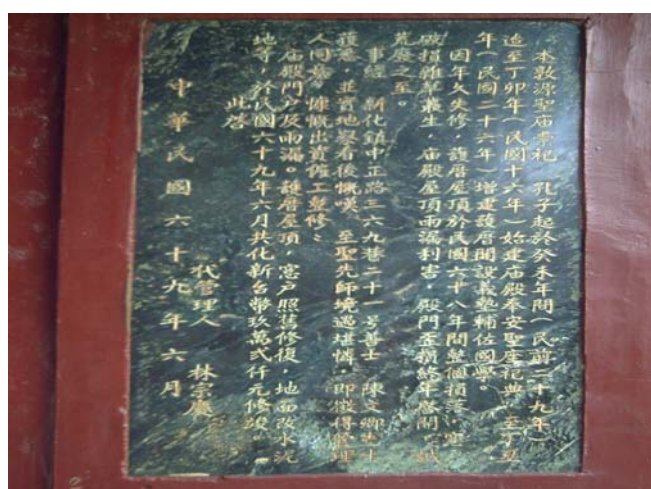 本敦源聖庙奉祀　孔子起於癸未年間（民前二十九年）
迨至丁卯年（民國十六年）始建庙殿奉安聖座祀典，至丁丑
年（民國二十六年）增建護厝開設義塾輔佐國學。
因年久失修，護厝屋頂於民國六十八年間整個損
破損雜草叢生，庙殿屋頂雨漏利害，殿門歪損終年啓閉，誠
荒廢之至。
事經　新化鎮中正路三六九巷二十一号善士　陳文卿
獲悉，並實地察看後慨嘆　至聖先師境遇堪憐，即徵得管理
人同意，慷慨出資僱工整修：
庙殿門户及雨漏。護厝屋頂，窓户照舊修復，地面改水泥
地等，於民國六十九年六月共化新台幣玖萬弍仟元修竣。
此啓
代管理人　林宗
中華民國六十九年六月